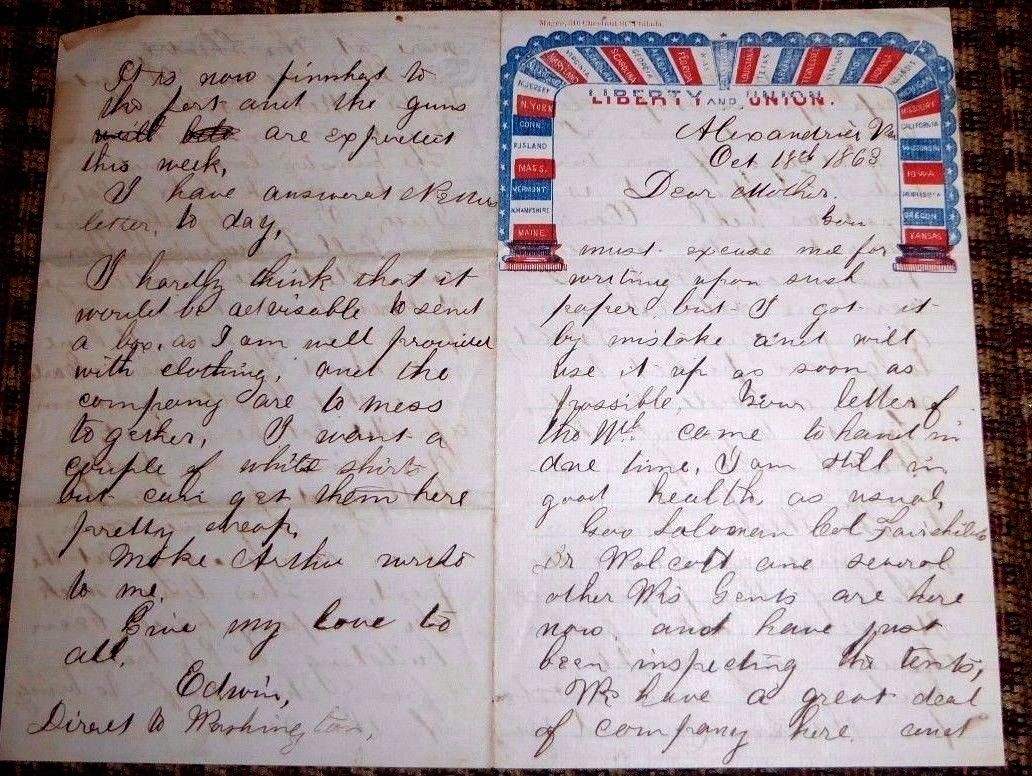 Magee, 316 Chestnut St. Philada.
LIBERTY AND UNION.
N. YORK
CONN.
R. ISLAND
MASS.
VERMONT
N. HAMPSHIRE
MAINE
MARYLAND
VIRGINIA
CAROLINA
GEORGIA
FLORIDA
LOUISIANA
TEXAS
MISSOURI
CALIFORNIA
WISCONSIN
IOWA
MINNESOTA
OREGON
KANSAS
Alexandria Va
Oct 18th 1863
Dear Mother.
You
must excuse me for
writing upon such
paper but I got it
by mistake and will
use it up as soon as
possible. Your letter of
the came to hand in
due time, I am still in
good health, as usual,
Gov Saloman Col Fairchild
Dr Walcott and several
other Wis Gents are here
now, and have just
been inspecting the tents,
We have a great deal
of company here and
It is now finnhest to
the fort and the guns
will are expected
this week,
I have answered
letter, to day,
I hardly think that it
would be advisable to send
a box, as I am well provided
with clothing, and the
company are to mess
together, I want a
couple of white shirts
but can get them here
pretty cheap,
Make Arthur write
to me,
Give my love to
all,
Edwin,
Direct to Washington,